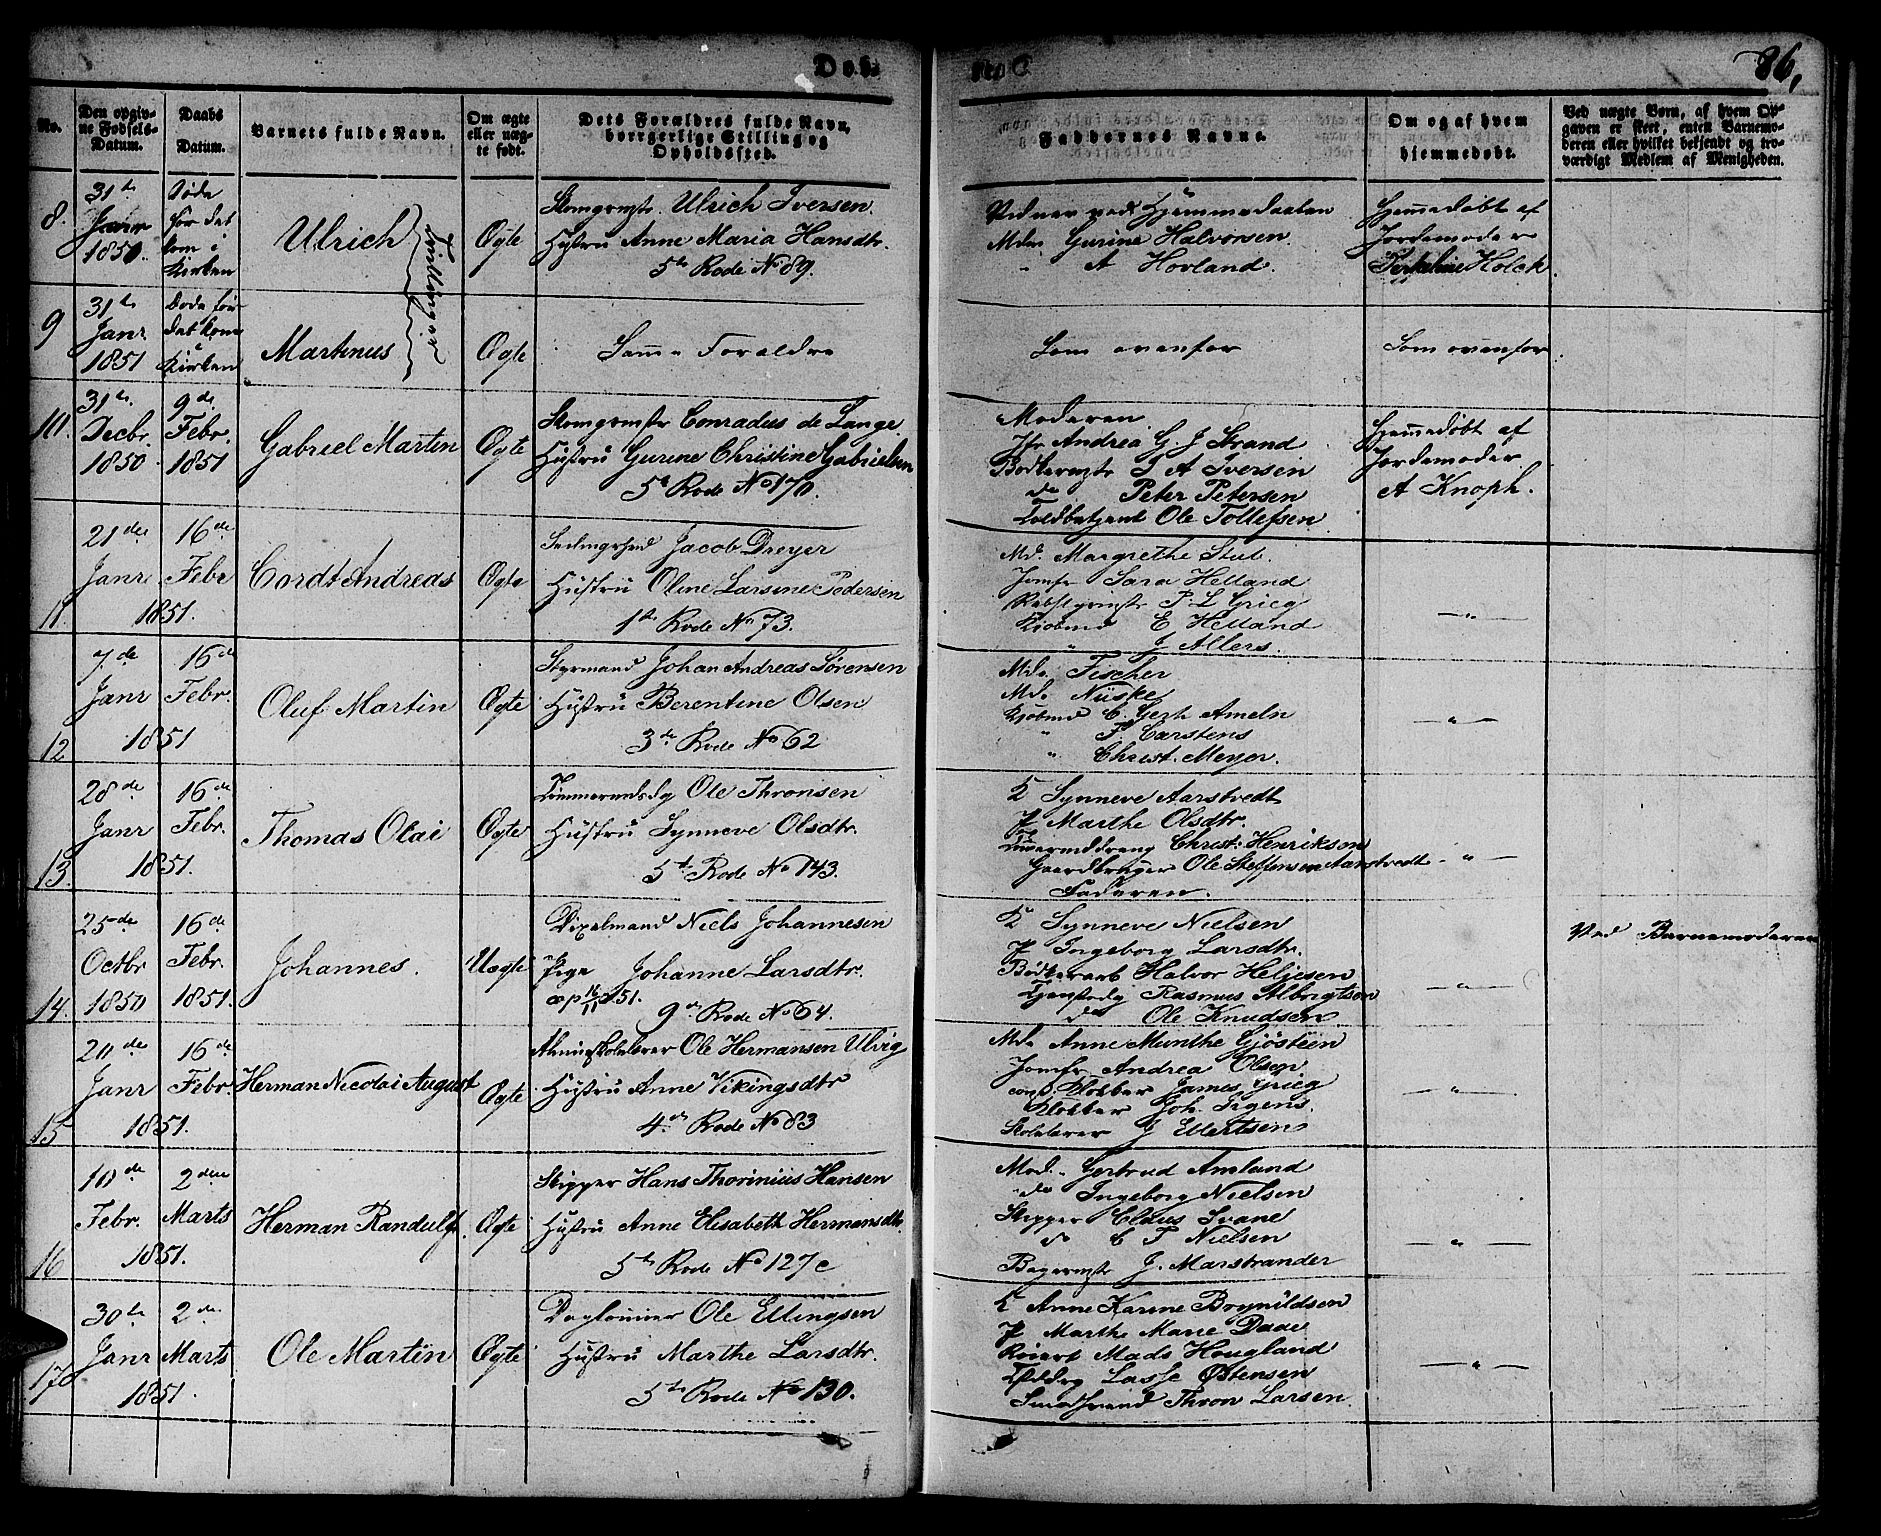 86,
No.
Den opgivne Fødsels-Datum.
Daabs Datum.
Barnets fulde Navn.
Om ægte eller uægte født.
Dets Forældres fulde Navn, borgerlige Stilling og Opholdssted.
Faddernes Navne.
Om og af hvem hjemmedøbt.
Ved uægte Børn, af hvem Opgaven er skeet, enten Barnemoderen eller hvilket bekjendt og troværdigt Medlem af Menigheden.
8.
31te
Janr
1850.
Døde
før det
kom i
Kirken
Ulrich
Tvillinger
Ægte
Ulrich Iversen.
Hustru Anne Maria Hansdtr.
5te Rode No 89.
Vidner ved Hjemmedaaben
Mdm Gurine Halvorsen.
" A Hovland.
Hjemmedøbt af
Jordemoder
Holck.
9
31te
Janr
1851
Døde før
det kom
i
Kirken
Martinus
Ægte
Samme Forældre
Som ovenfor
Som ovenfor
10.
31te
Decbr.
1850.
9de
Febr.
1851
Gabriel Martin
Ægte
Conradus de Lange
Hustru Gurine Christine Gabrielsen
5te Rode No 170.
Moderen
Jfr Andrea G. J Strand
Bødkermstr I A Iversen
do Peter Petersen
Toldbetjent Ole Tollefsen
Hjemmedøbt af
Jordemoder
A Knoph.
11
21de
Janr
16de
Febr
1851.
Cordt Andreas
Ægte
Jacob Dreyer
Hustru Oline Larsine Pedersen
1te Rode No 73.
Md. Margrethe Stub.
Jomfr Sara Helland
P. L Grieg
Kjøbmd E Helland
" J Allers.
— " —
12
7de
Janr
16de
Febr.
1851
Oluf Martin
Ægte
Styrmand Johan Andreas Sørensen
Hustru Berentine Olsen
3de Rode No 62
Md. Fischer
Md. Nüske
Kjøbmd C. Gerh Ameln
" F. Carstens
" Christ. Meyer.
— " —
13.
28de
Janr
16de
Febr.
1851.
Thomas Olai
Ægte
Ole Thronsen
Hustru Synneve Olsdtr.
5te Rode No 143.
K Synneve Aarstvedt
P Marthe Olsdtr.
Christ: Henriksen
Gaardbruger Ole Steffensen Aarstvedt
Faderen.
— " —
14.
25de
Octbr
1850
16de
Febr.
1851.
Johannes.
Uægte
Niels Johannesen
Pige Johanne Larsdtr.
9de Rode No 64.
K Synneve Nielsen
P Ingeborg Larsdtr.
Bødkerarb Halvor Heljesen
Rasmus Albrigtsen
do Ole Knudsen
— " —
Ved Barnemoderen
15
20de
Janr
16de
Febr.
1851.
Herman Nicolai August
Ægte
Almueskolelærer Ole Hermansen Ulvig
Hustru Anne Vikingsdtr
4de Rode No 83
Md. Anne Munthe Gjøsteen
Jomfr Andrea Olsen
const. Klokker James Grieg
Klokker Joh. Irgens.
Skolelærer J Ellertsen
— " —
16
10de
Febr.
2den
Marts
1851.
Herman Randulf.
Ægte
Skipper Hans Thorinius Hansen
Hustru Anne Elisabeth Hermansdtr.
5te Rode No 127c
Mad. Gertrud Amland
do Ingeborg Nielsen
Skipper Claus Svane
do C F Nielsen
Bagermstr J. Marstrander
— " —
17
30te
Janr
2de
Marts
1851.
Ole Martin
Ægte
Daglønner Ole Ellingsen
Hustru Marthe Larsdtr.
5te Rode No 130.
K Anne Karine Brynildsen
P Marthe Marie Daae
Mads Hougland
Lasse Østensen
Thron Larsen.
— " —